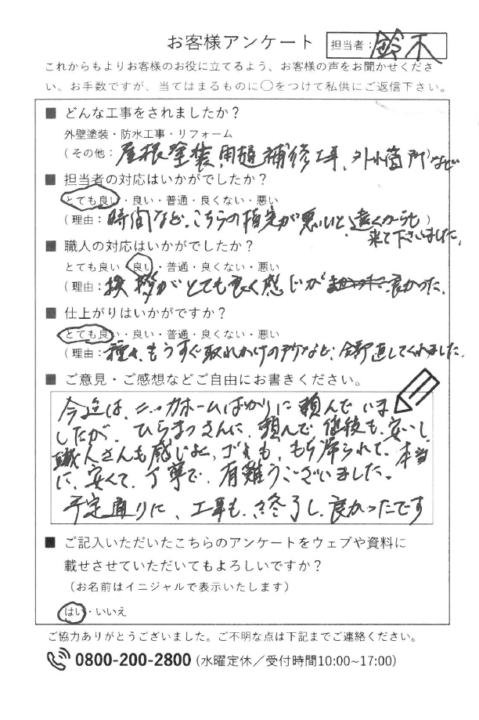 お客様アンケート 担当者: 鈴木
これからもよりお客様のお役に立てるよう、お客様の声をお聞かせくださ
い。お手数ですが、当てはまるものに○をつけて私供にご返信下さい。
■ どんな工事をされましたか？
外壁塗装・防水工事・リフォーム
(その他: 屋根塗装、雨樋補修工事、外小箇所など
■ 担当者の対応はいかがでしたか？
とても良い・良い・普通・良くない・悪い
(理由: 時間など、こちらの指定が悪いと、遠くからも)
来て下さいました。
■ 職人の対応はいかがでしたか？
とても良い・良い・普通・良くない・悪い
(理由: 挨拶がとても良く感じが良かった。
■ 仕上がりはいかがですか？
とても良い・良い・普通・良くない・悪い
(理由: 種々、もうすぐ取れかけの所など、全部直してくれました。
■ ご意見・ご感想などご自由にお書きください。
今迄は、ニッカホームばかりに頼んでいま
したが、ひらまつさんに、頼んで 値段も、安いし
職人さんも感じよく、ゴミも、もち帰られて、本当
に、安くて、丁寧で、有難うございました。
予定通りに、工事も、終了し、良かったです
■ ご記入いただいたこちらのアンケートをウェブや資料に
載せさせていただいてもよろしいですか？
(お名前はイニシャルで表示いたします)
はい・いいえ
ご協力ありがとうございました。ご不明な点は下記までご連絡ください。
0800-200-2800 (水曜定休／受付時間10:00~17:00)